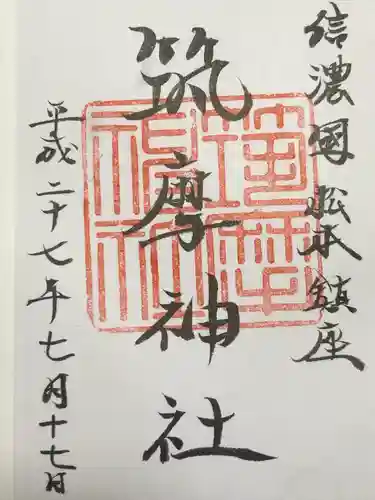 信濃國松本鎮座
筑摩神社
平成二十七年七月十七日
筑摩神社